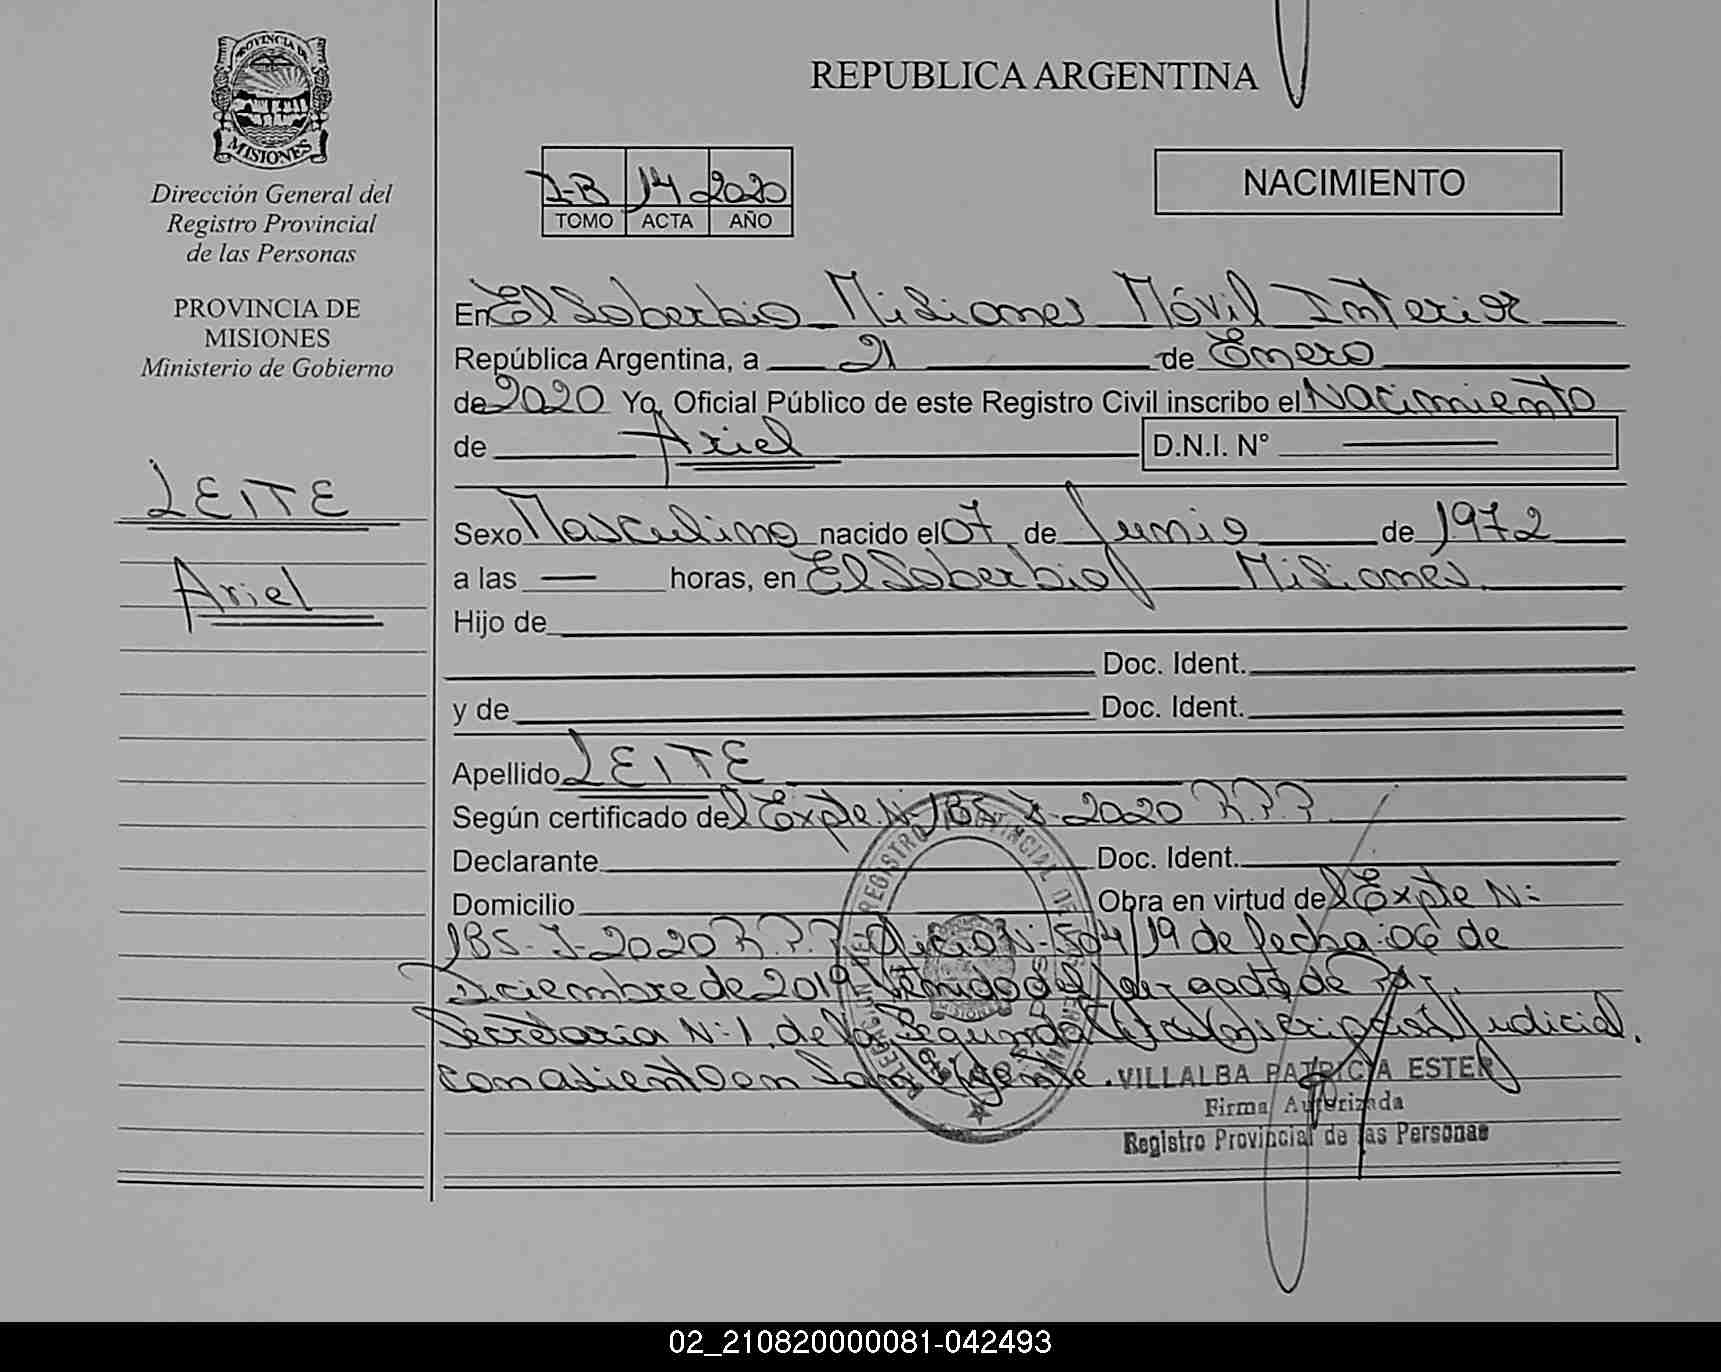 PROVINCIA DE
MISIONES
Dirección General del
Registro Provincial
de las Personas
PROVINCIA DE
MISIONES
Ministerio de Gobierno
LEITE
Ariel
REPUBLICA ARGENTINA
I-B 14 2020
TOMO ACTA AÑO
NACIMIENTO
En El Soberbio Misiones Móvil Interior
República Argentina, a 21 de Enero
de 2020 Yo, Oficial Público de este Registro Civil inscribo el Nacimiento
de Ariel D.N.I. N°
Sexo Masculino nacido el 07 de Junio de 1972
a las — horas, en El Soberbio Misiones
Hijo de
Doc. Ident.
y de Doc. Ident.
Apellido LEITE
Según certificado del Expte N: 185-I-2020 R.P.P.
Declarante Doc. Ident.
Domicilio Obra en virtud del Expte N:
185-I-2020 R.P.P. Oficio N: 504/19 de fecha 06 de
Diciembre de 2019 Venido del Juzgado de Paz.
Secretaria N: 1, de la Segunda Circunscripción Judicial,
con asiento en San Vicente.
VILLALBA PATRICIA ESTER
Firma Autorizada
Registro Provincial de las Personas
02_210820000081-042493